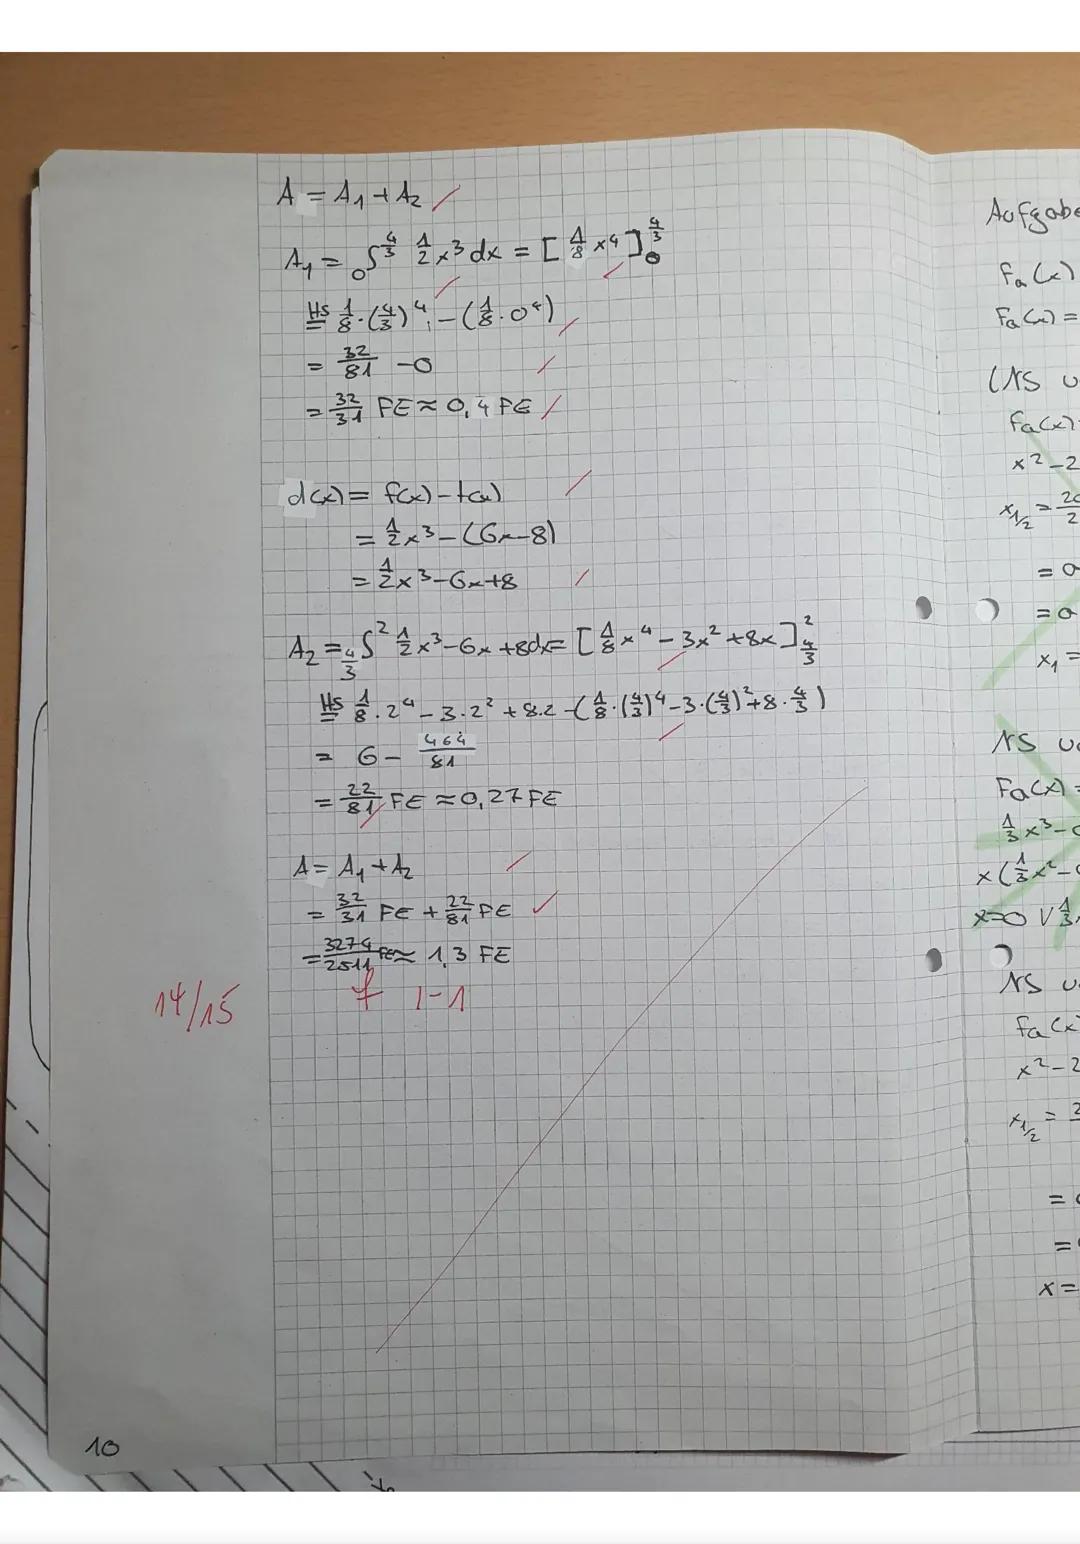 A = A₁ + A₂
A₁ = ₀∫^(4/3) 1/2 x³ dx = [1/8 x⁴]₀^(4/3)
HS= 1/8 · (4/3)⁴ - (1/8 · 0⁴)
= 32/81 - 0
= 32/31 FE ≈ 0,4 FE
d(x) = f(x) - t(x)
= 1/2 x³ - (6x - 8)
= 1/2 x³ - 6x + 8
A₂ = _(4/3)∫² 1/2 x³ - 6x + 8 dx = [1/8 x⁴ - 3x² + 8x]_(4/3)^2
HS= 1/8 · 2⁴ - 3 · 2² + 8 · 2 - (1/8 · (4/3)⁴ - 3 · (4/3)² + 8 · 4/3)
= 6 - 464/81
= 22/81 FE ≈ 0,27 FE
A = A₁ + A₂
= 32/31 FE + 22/81 FE
= 3274/2511 FE ≈ 1,3 FE
f 1-1
14/15
10
Aufgabe
Fa(x)
Fa(x) =
(NS
fa(x)
x² - 2
x₁/₂ =
=
=
x₁ =
NS
Fa(x) =
1/3 x³ -
x (1/3 x² -
x=0 ∨ 1/3
NS
fa(x)
x² - 2
x₁/₂ =
=
=
x =